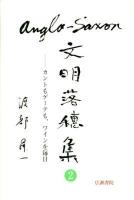 Anglo-Saxon
文明落穂集
——カントもゲーテも、ワインを毎日
渡部昇一
2
広瀬書院